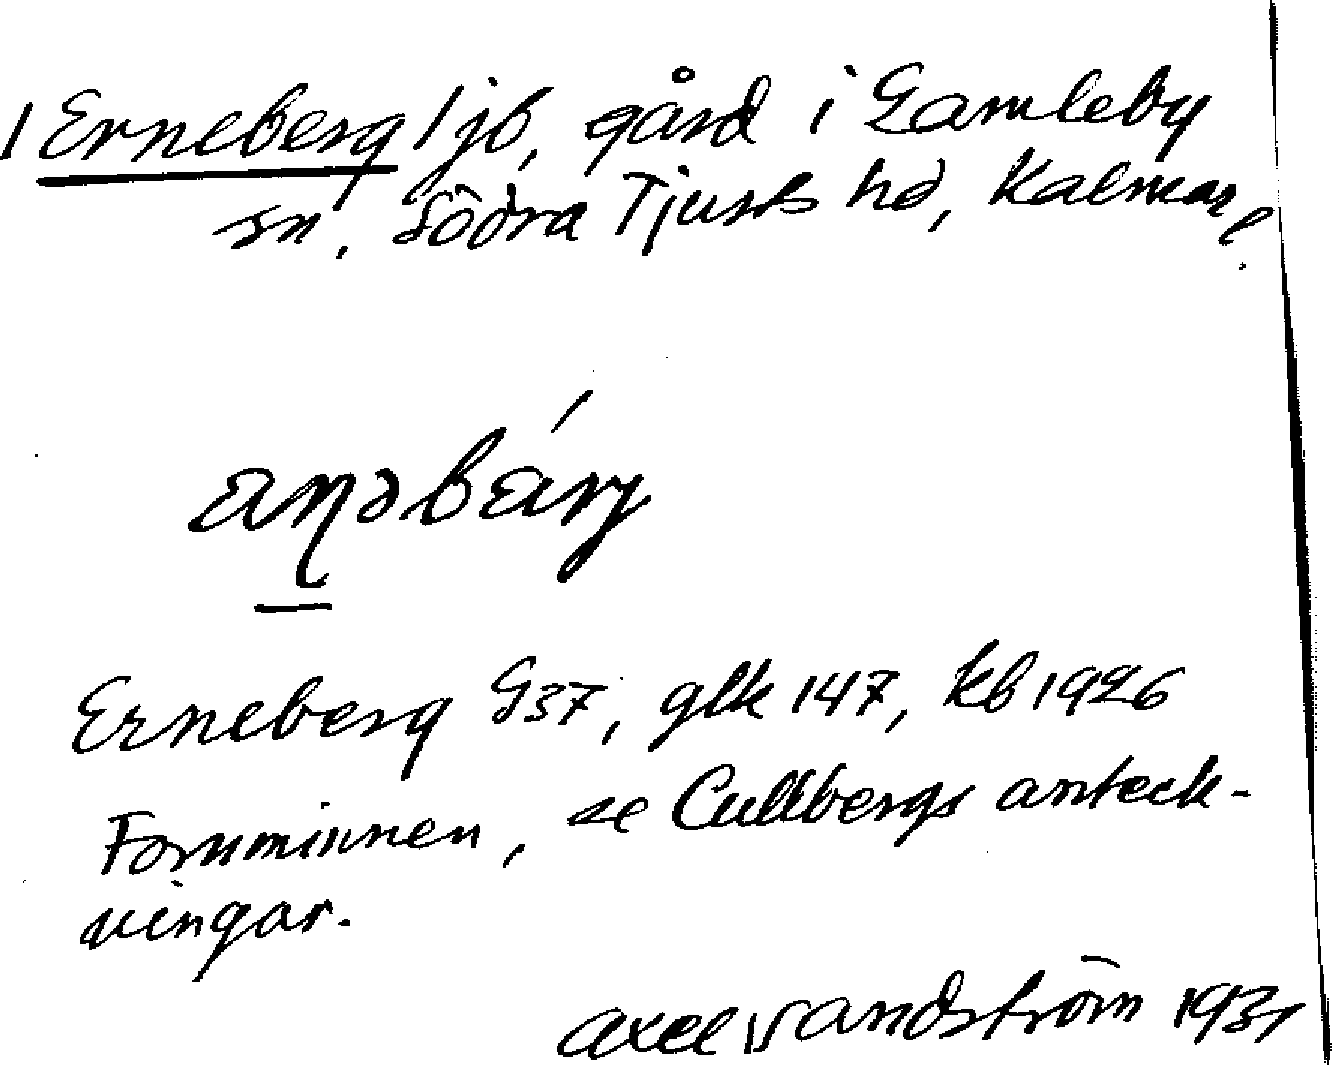 /Erneberg/ jb, gård i Gamleby
sn, Södra Tjusts hd, Kalmar l.
Erneberg G37, glk 147, kb 1926
Fornminnen, se Cullbergs anteck-
ningar.
Axel Sandström 1931